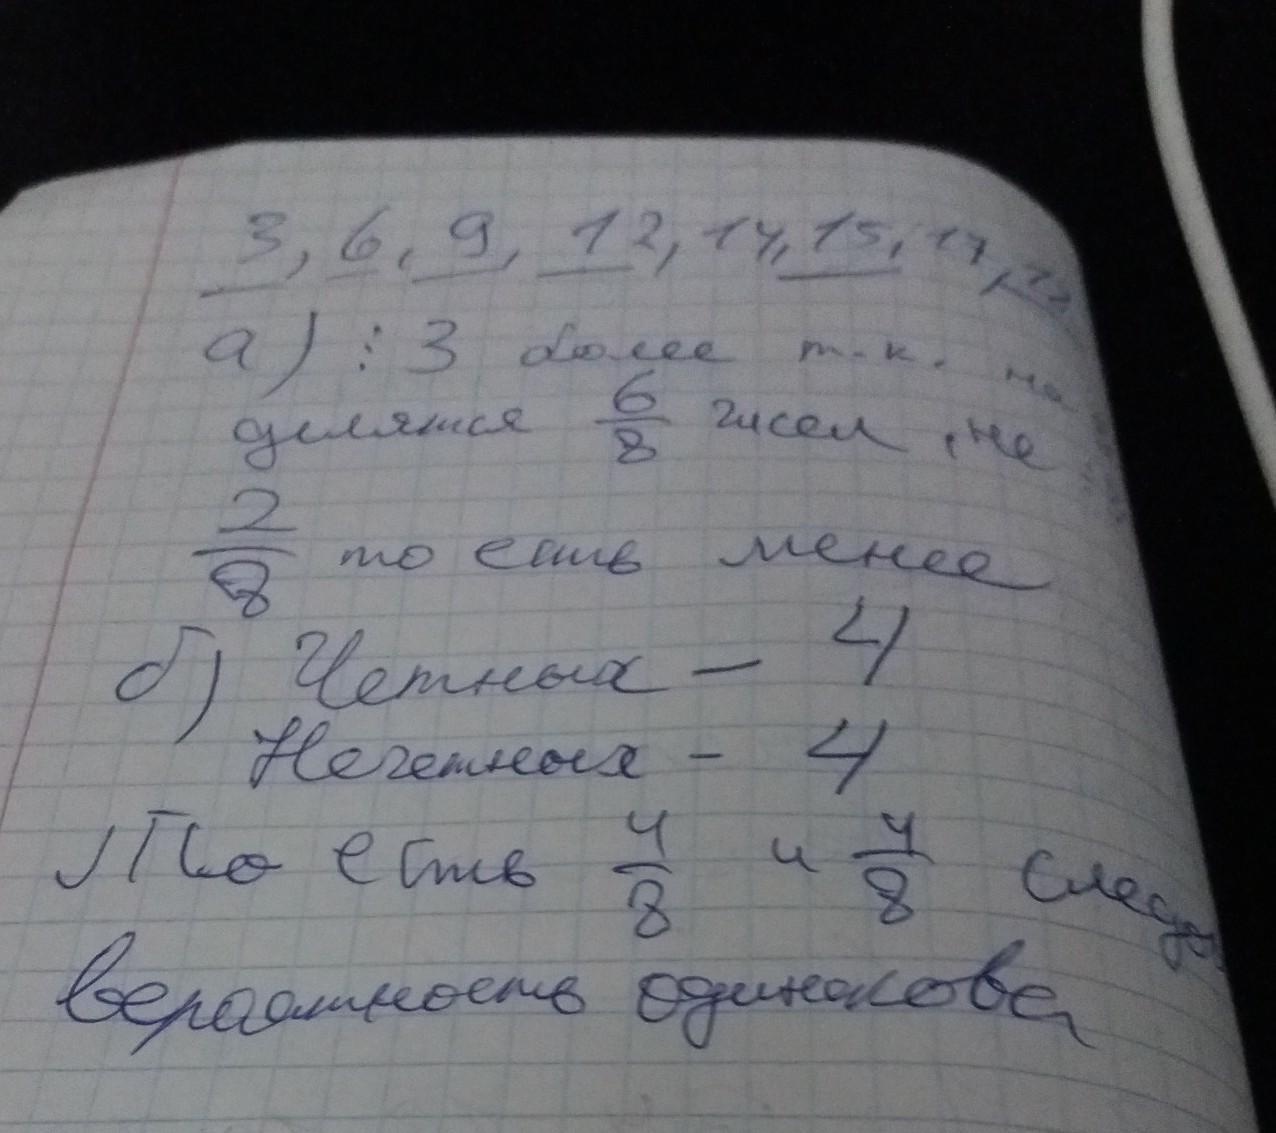 3, 6, 9, 12, 14, 15, 17,
а) ⋮ 3 более т.к. на
делятся 6/8 чисел, не
2/8 то есть менее
б) Четных – 4
Нечетных – 4
То есть 4/8 и 4/8 следо
вероятность одинакова